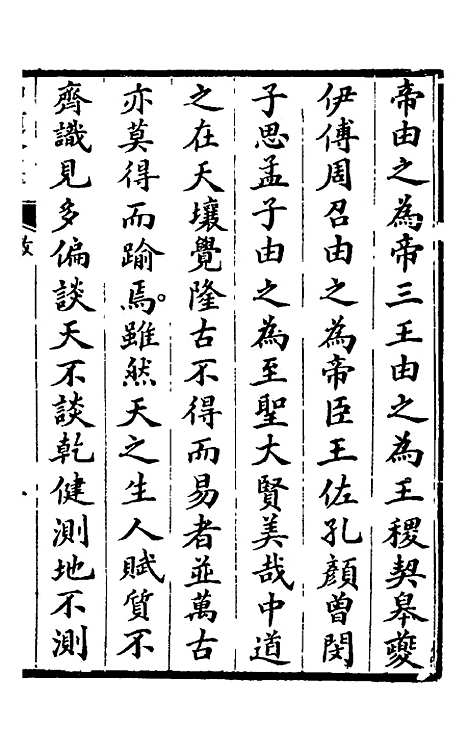 帝由之為帝三王由之為王稷契皋夔
伊傅周召由之為帝臣王佐孔顏曾閔
子思孟子由之為至聖大賢美哉中道
之在天壤覺隆古不得而易者並萬古
亦莫得而踰焉。雖然天之生人賦質不
齊識見多偏談天不談乾健測地不測